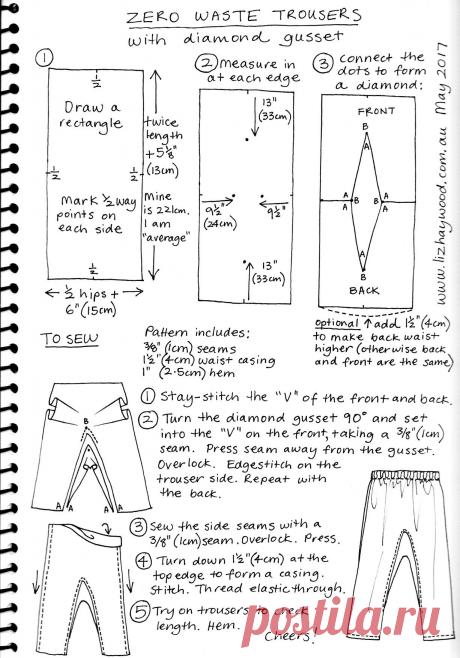 ZERO WASTE TROUSERS
with diamond gusset
① 
1/2
Draw a
rectangle
1/2
1/2
Mark 1/2 way
points on
each side
1/2
twice
length
+ 5 1/8"
(13cm)
Mine
is 221cm.
I am
"average"
1/2 hips +
6" (15cm)
② measure in
at each edge
13"
(33cm)
9 1/2"
(24cm)
9 1/2"
13"
(33cm)
③ connect the
dots to form
a diamond:
FRONT
B
A
A
B
A
B
A
B
A
A
B
BACK
optional ↑ add 1 1/2" (4cm)
to make back waist
higher (otherwise back
and front are the same)
www.lizhaywood.com.au May 2017
TO SEW
Pattern includes:
3/8" (1cm) seams
1 1/2" (4cm) waist casing
1" (2.5cm) hem
① Stay-stitch the "V" of the front and back.
② Turn the diamond gusset 90° and set
into the "V" on the front, taking a 3/8" (1cm)
seam. Press seam away from the gusset.
Overlock. Edgestitch on the
trouser side. Repeat with
the back.
B
A
A
A
A
③ Sew the side seams with a
3/8" (1cm) seam. Overlock. Press.
④ Turn down 1 1/2" (4cm) at the
top edge to form a casing.
Stitch. Thread elastic through.
⑤ Try on trousers to check
length. Hem.
Cheers!
postila.ru